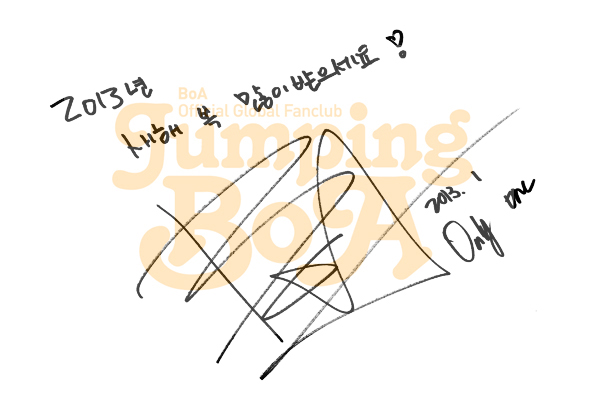 2013년
새해 복 많이 받으세요♡
BoA
Official Global Fanclub
Jumping
BoA
2013. 1
Only one